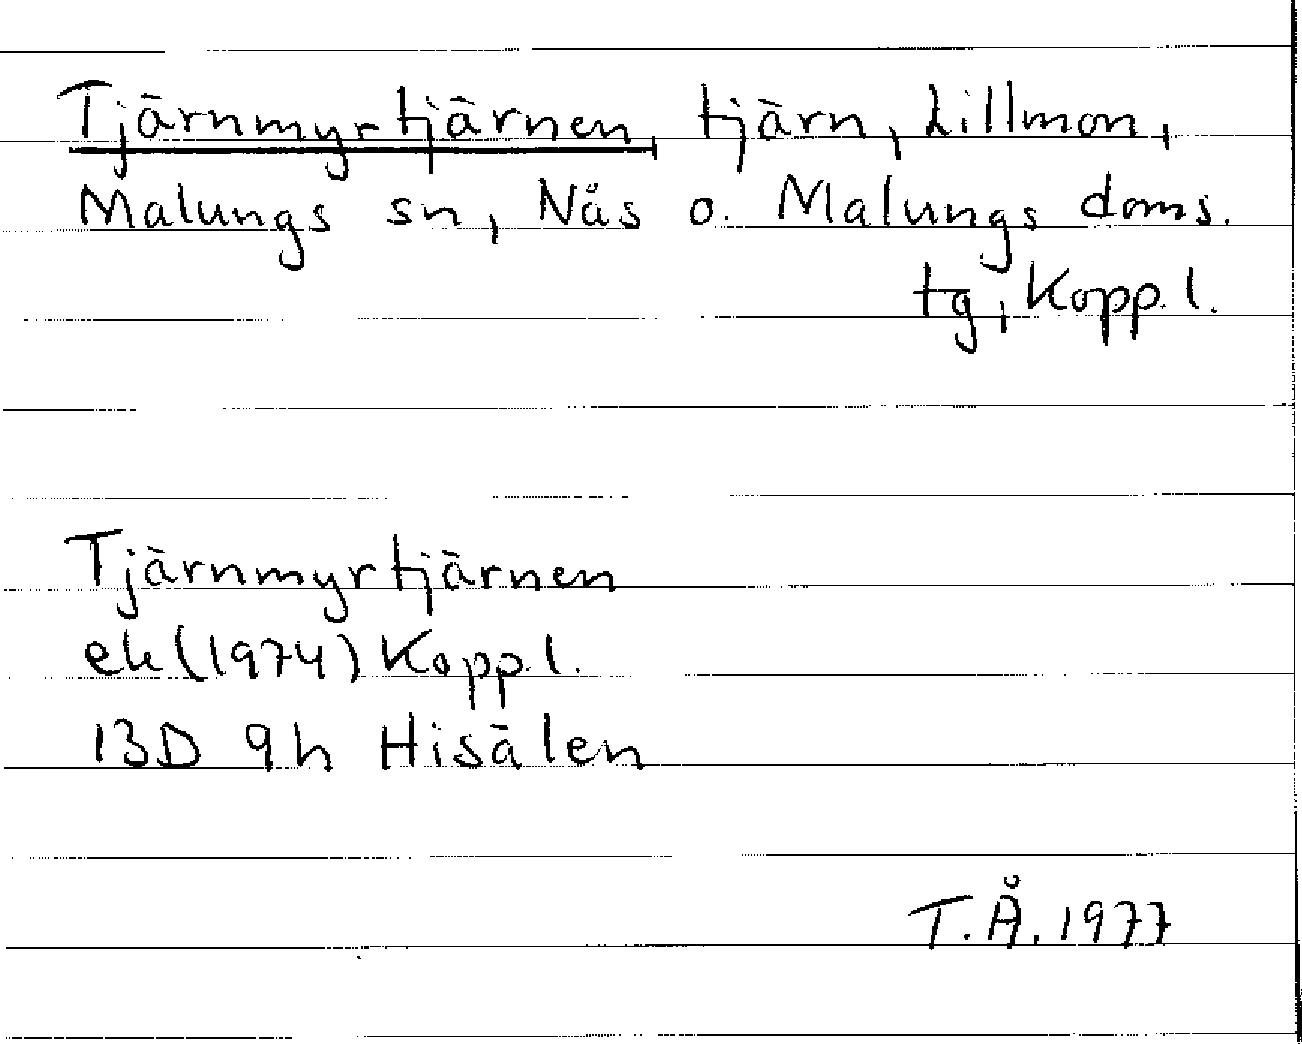 Tjärnmyrtjärnen, tjärn, Lillmon,
Malungs sn, Nås o. Malungs doms.
tg, Kopp. l.
Tjärnmyrtjärnen
ek (1974) Kopp. l.
13D 9h Hisälen
T.Å. 1977